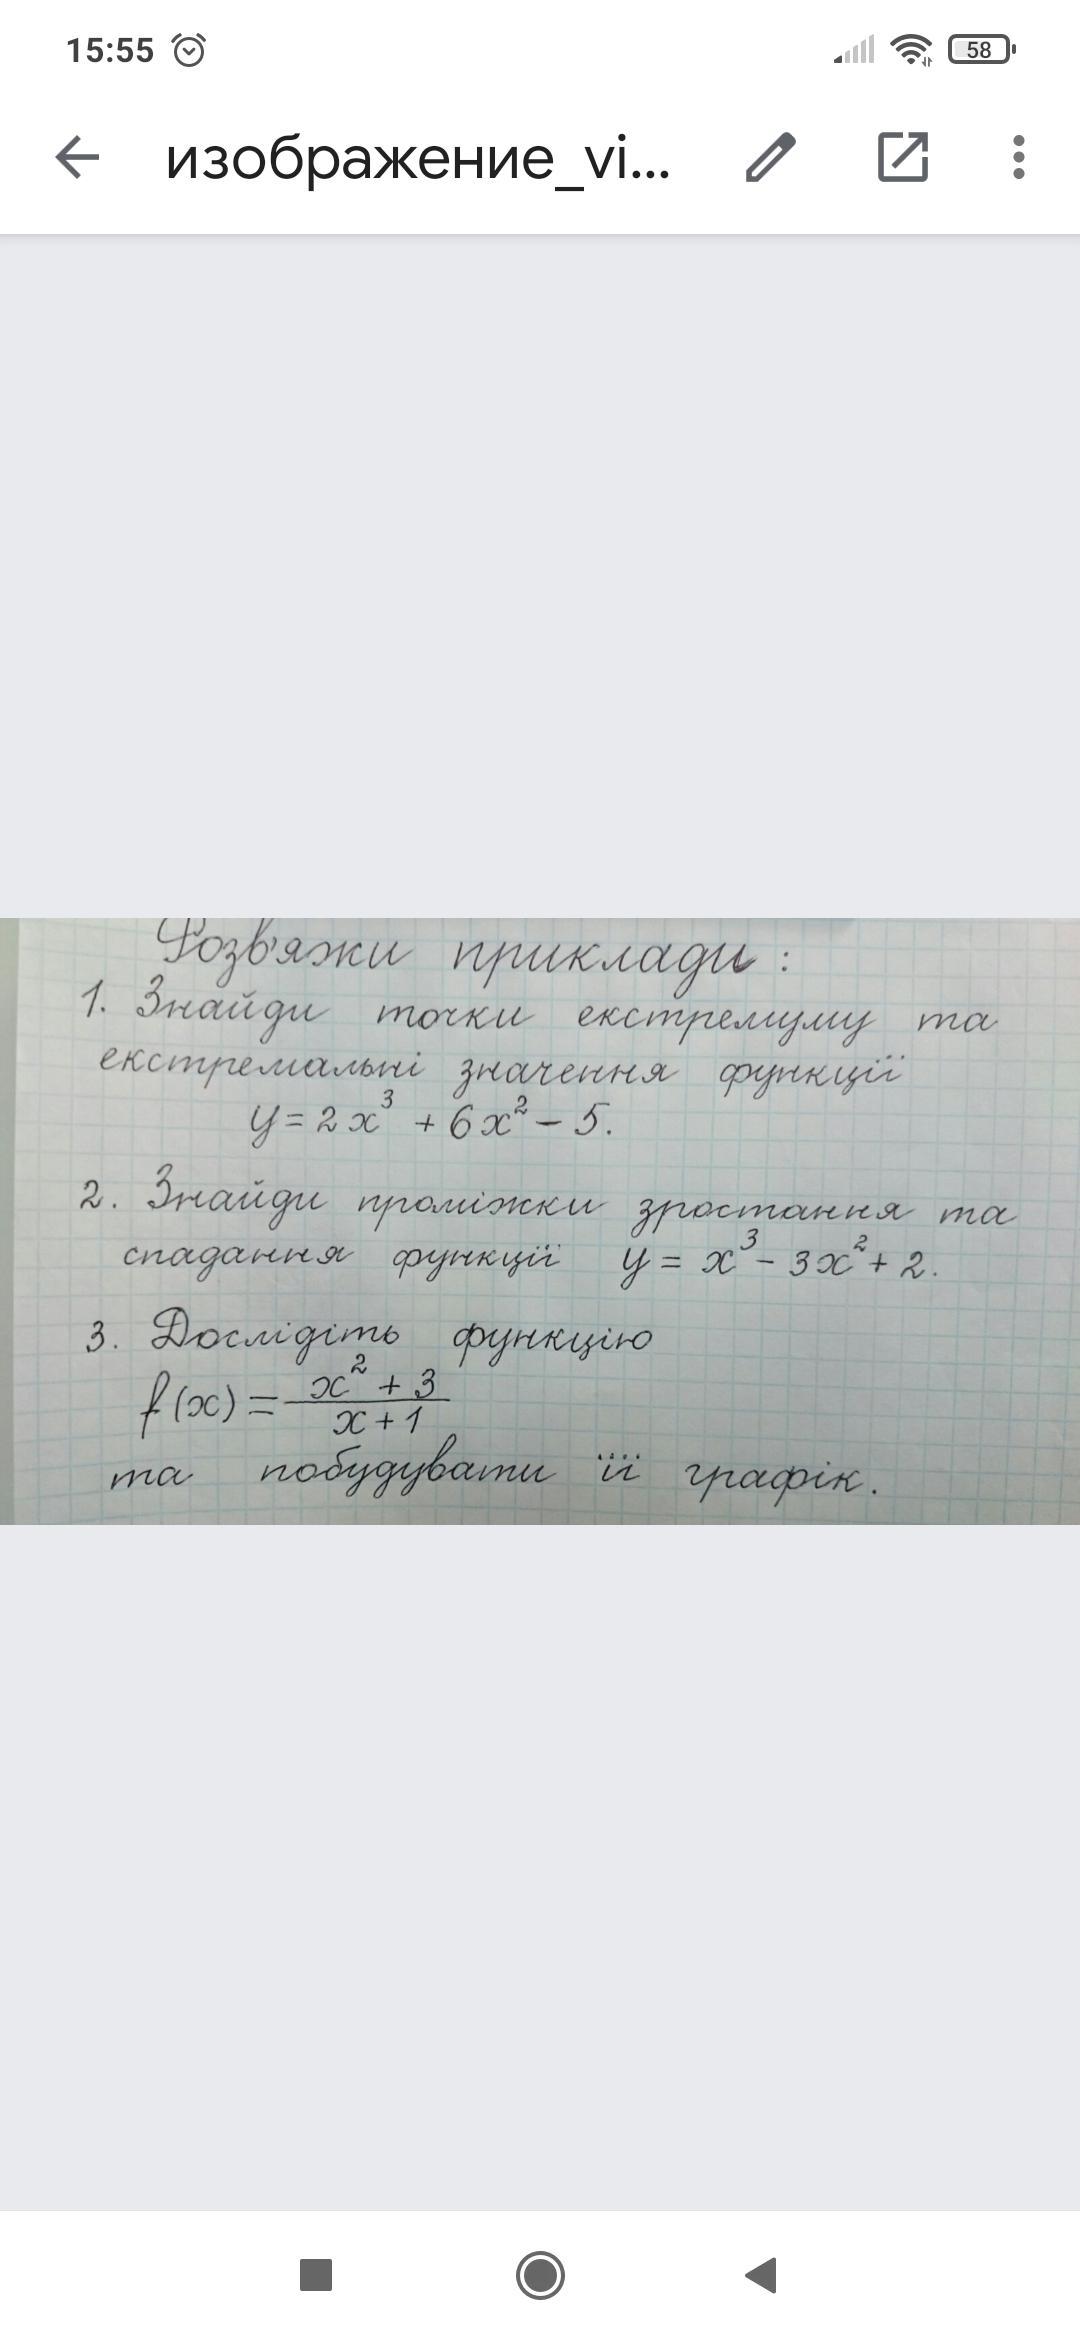 15:55
58
изображение_vi...
Розв'яжи приклади :
1. Знайди точки екстремуму та
екстремальні значення функції
y = 2x³ + 6x² - 5.
2. Знайди проміжки зростання та
спадання функції y = x³ - 3x² + 2.
3. Дослідіть функцію
f(x) = \frac{x² + 3}{x + 1}
та побудувати її графік.